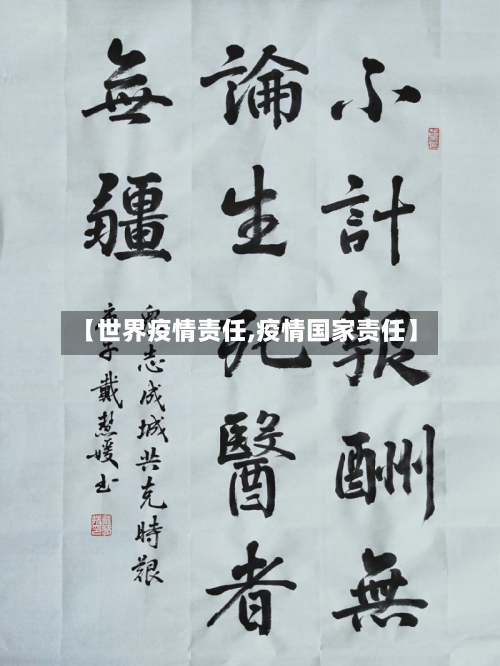 不計報酬無
論生死醫者
無疆
眾志成城共克時艱
庚子戴慧媛书
【世界疫情责任,疫情国家责任】